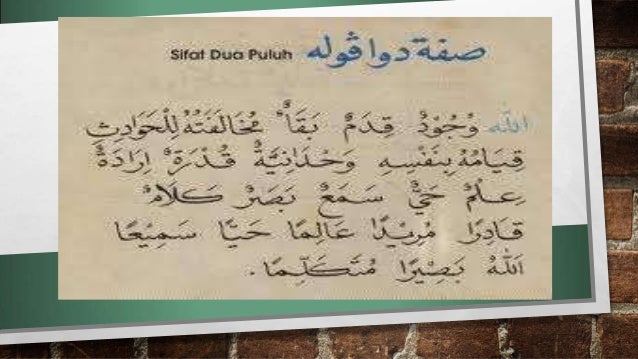 صفة دوا ڤوله Sifat Dua Puluh
الله وُجُوْدٌ قِدَمٌ بَقَاءٌ مُخَالَفَتُهُ لِلْحَوَادِثِ
قِيَامُهُ بِنَفْسِهِ وَحْدَانِيَّةٌ قُدْرَةٌ اِرَادَةٌ
عِلْمٌ حَيٌّ سَمَعٌ بَصَرٌ كَلَامٌ
قَادِرًا مُرِيْدًا عَالِمًا حَيًّا سَمِيْعًا
اَللهُ بَصِيْرًا مُتَكَلِّمًا.